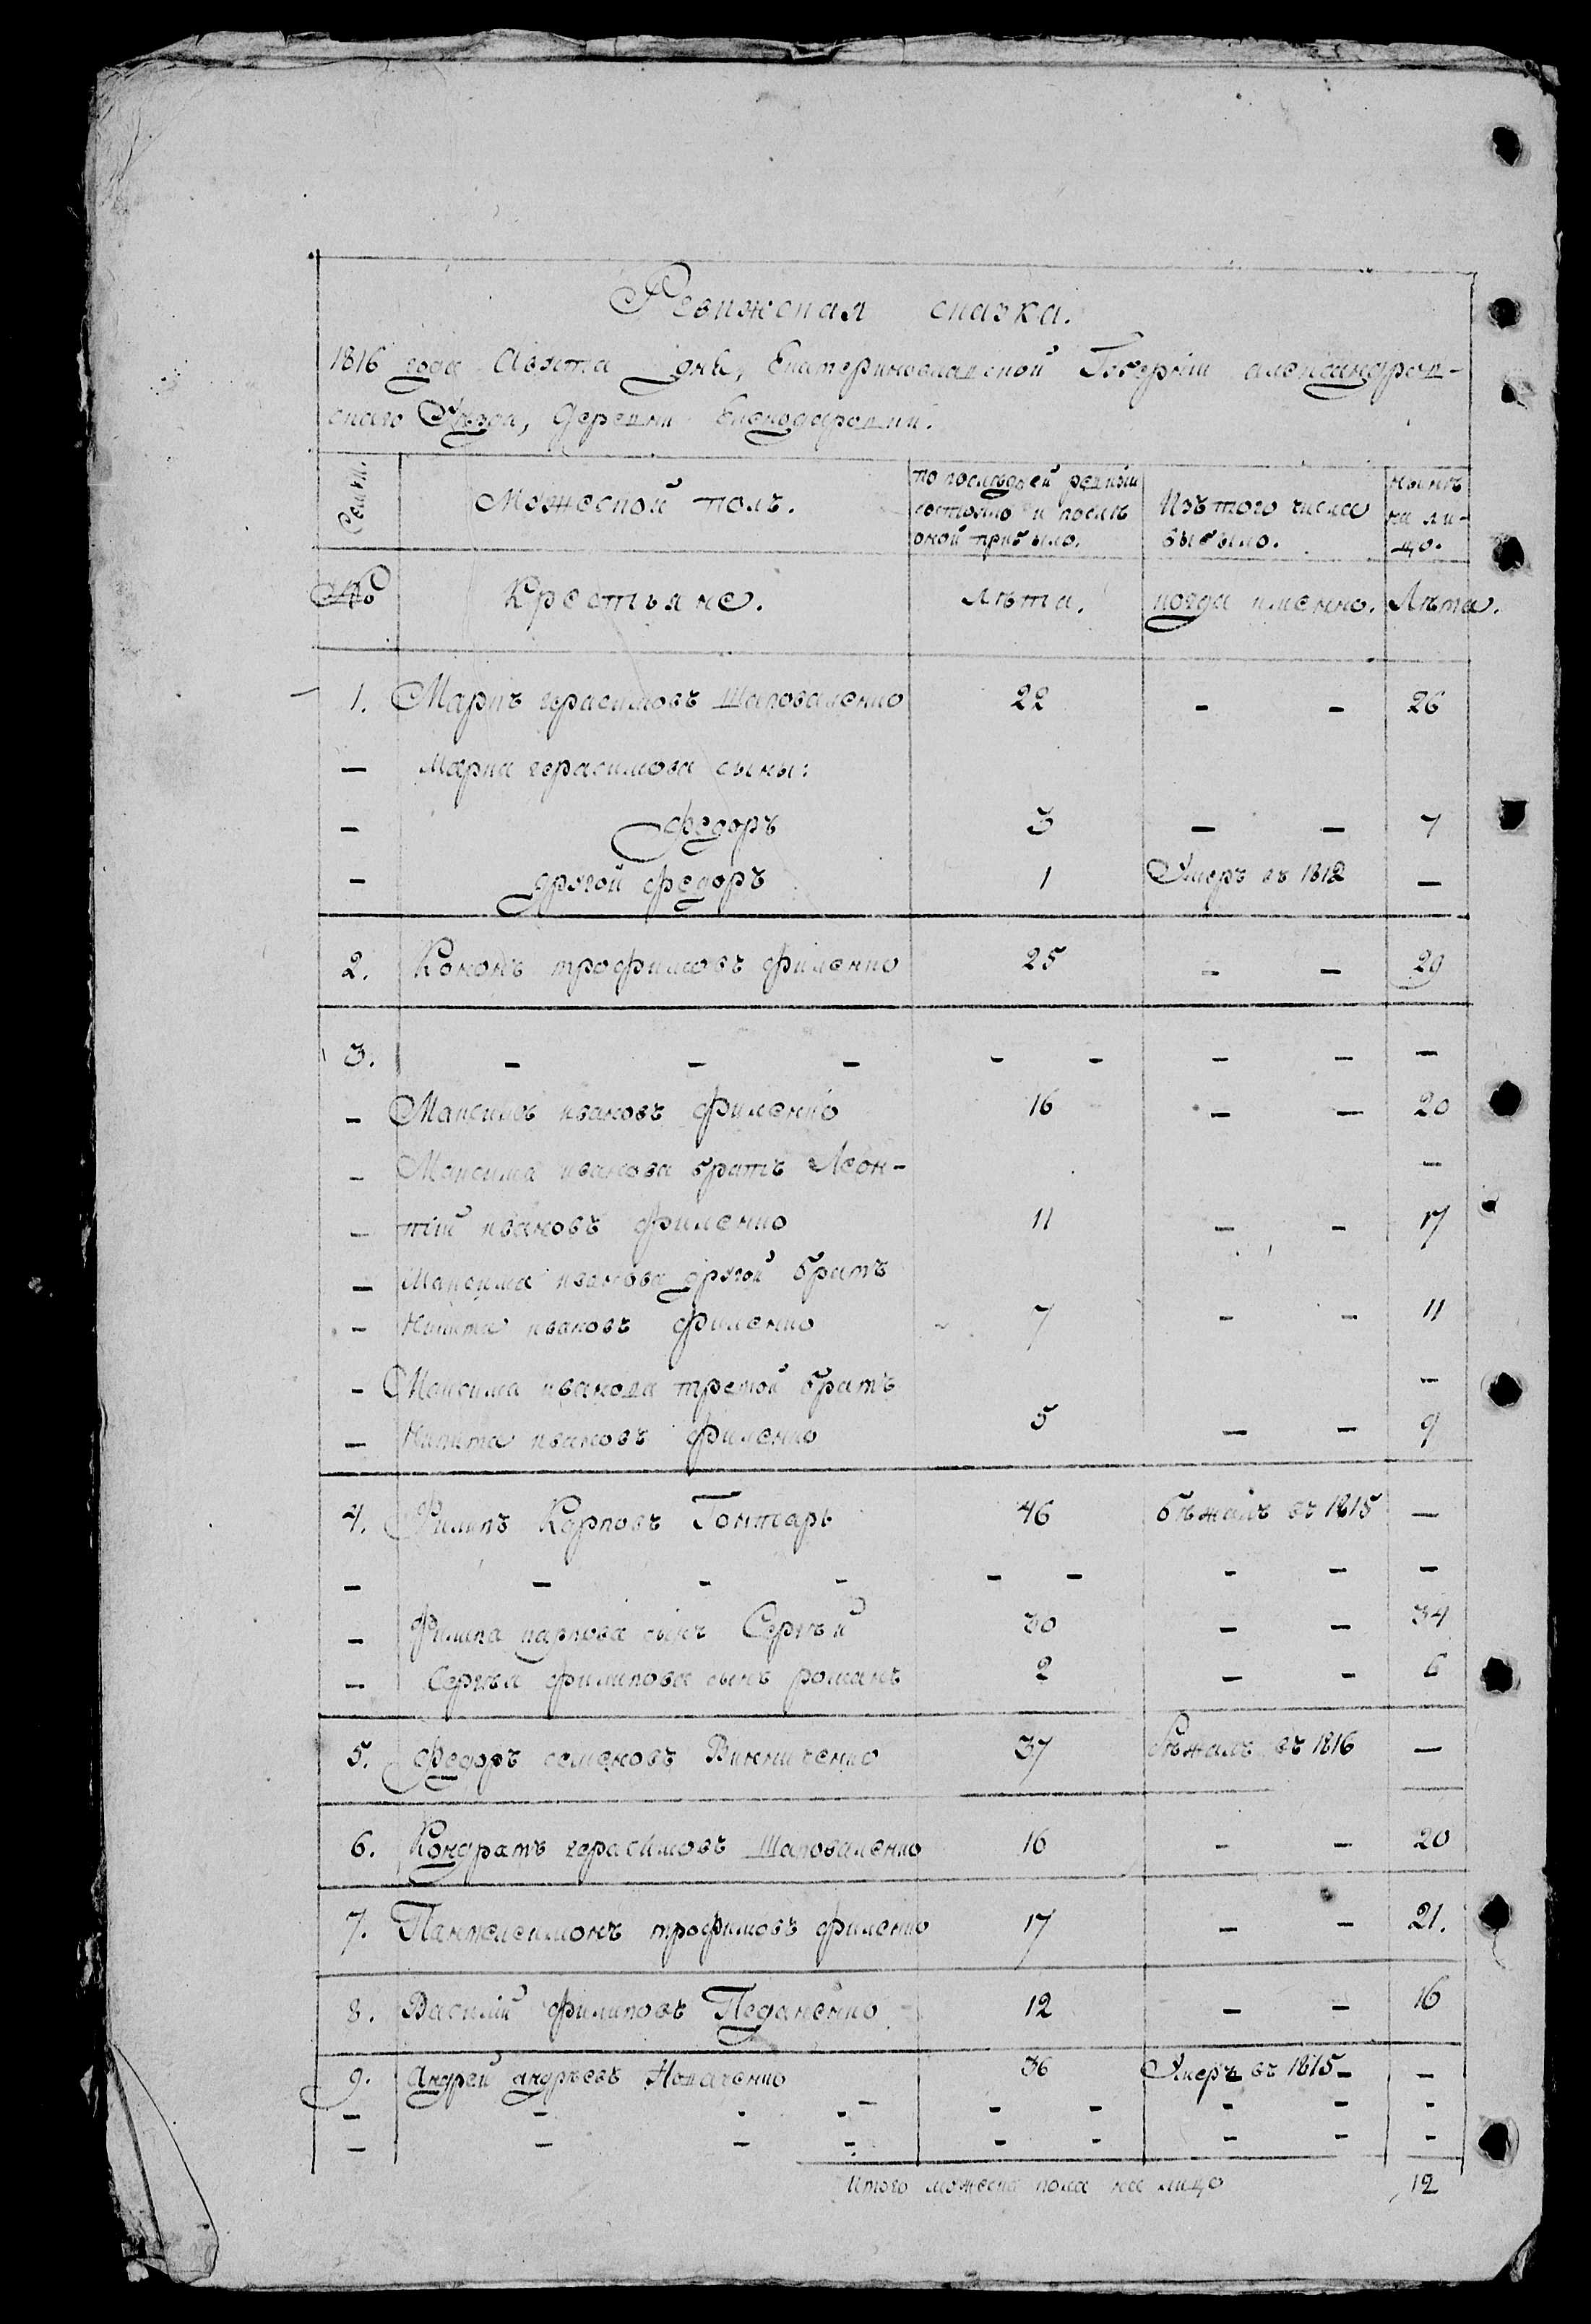 Ревижская сказка.
1816 года Августа дня, Екатеринославской Губерніи александров-
скаго Уезда, деревни
Семьи.
Мужеской полъ.
по последней ревизіи
состояло и после
оной прибыло.
Изъ того числа
выбыло.
ныне
на ли-
цо.
№
Крестьяне.
Лета.
когда именно.
Лета.
1. Маркъ герасимовъ шаповаленко 22 - - 26
— Марка герасимова сыны:
— федоръ 3 — — 7
— другой федоръ 1 Умеръ въ 1812 —
2. Кононъ трофимовъ филенко 25 - - 29
3. - - - - - - - —
— Максимъ ивановъ филенко 16 - - 20
— Максима иванова братъ Леон- —
— тій ивановъ филенко 11 - - 17
— Максима иванова другой братъ
— Никита ивановъ филенко 7 - - 11
— Максима иванова третой братъ —
— Никита ивановъ филенко 5 — — 9
4. Филипъ Карповъ Гонтарь 46 бежалъ въ 1815 —
— - - - - - - - —
— Филипа карпова сынъ Сергей 30 - - 34
— Сергея филипова сынъ романъ 2 — - 6
5. федоръ семеновъ Винниченко 37 бежалъ въ 1816 —
6. Кондратъ герасимовъ шаповаленко 16 - - 20
7. Пантелеимонъ трофимовъ филенко 17 - - 21.
8. Василій филиповъ Педаненко 12 - - 16
9. Андрей андреевъ 36 Умеръ въ 1815 - —
— - - - - - - - -
— - - - - - - - -
Итого мужеска пола на лицо 12